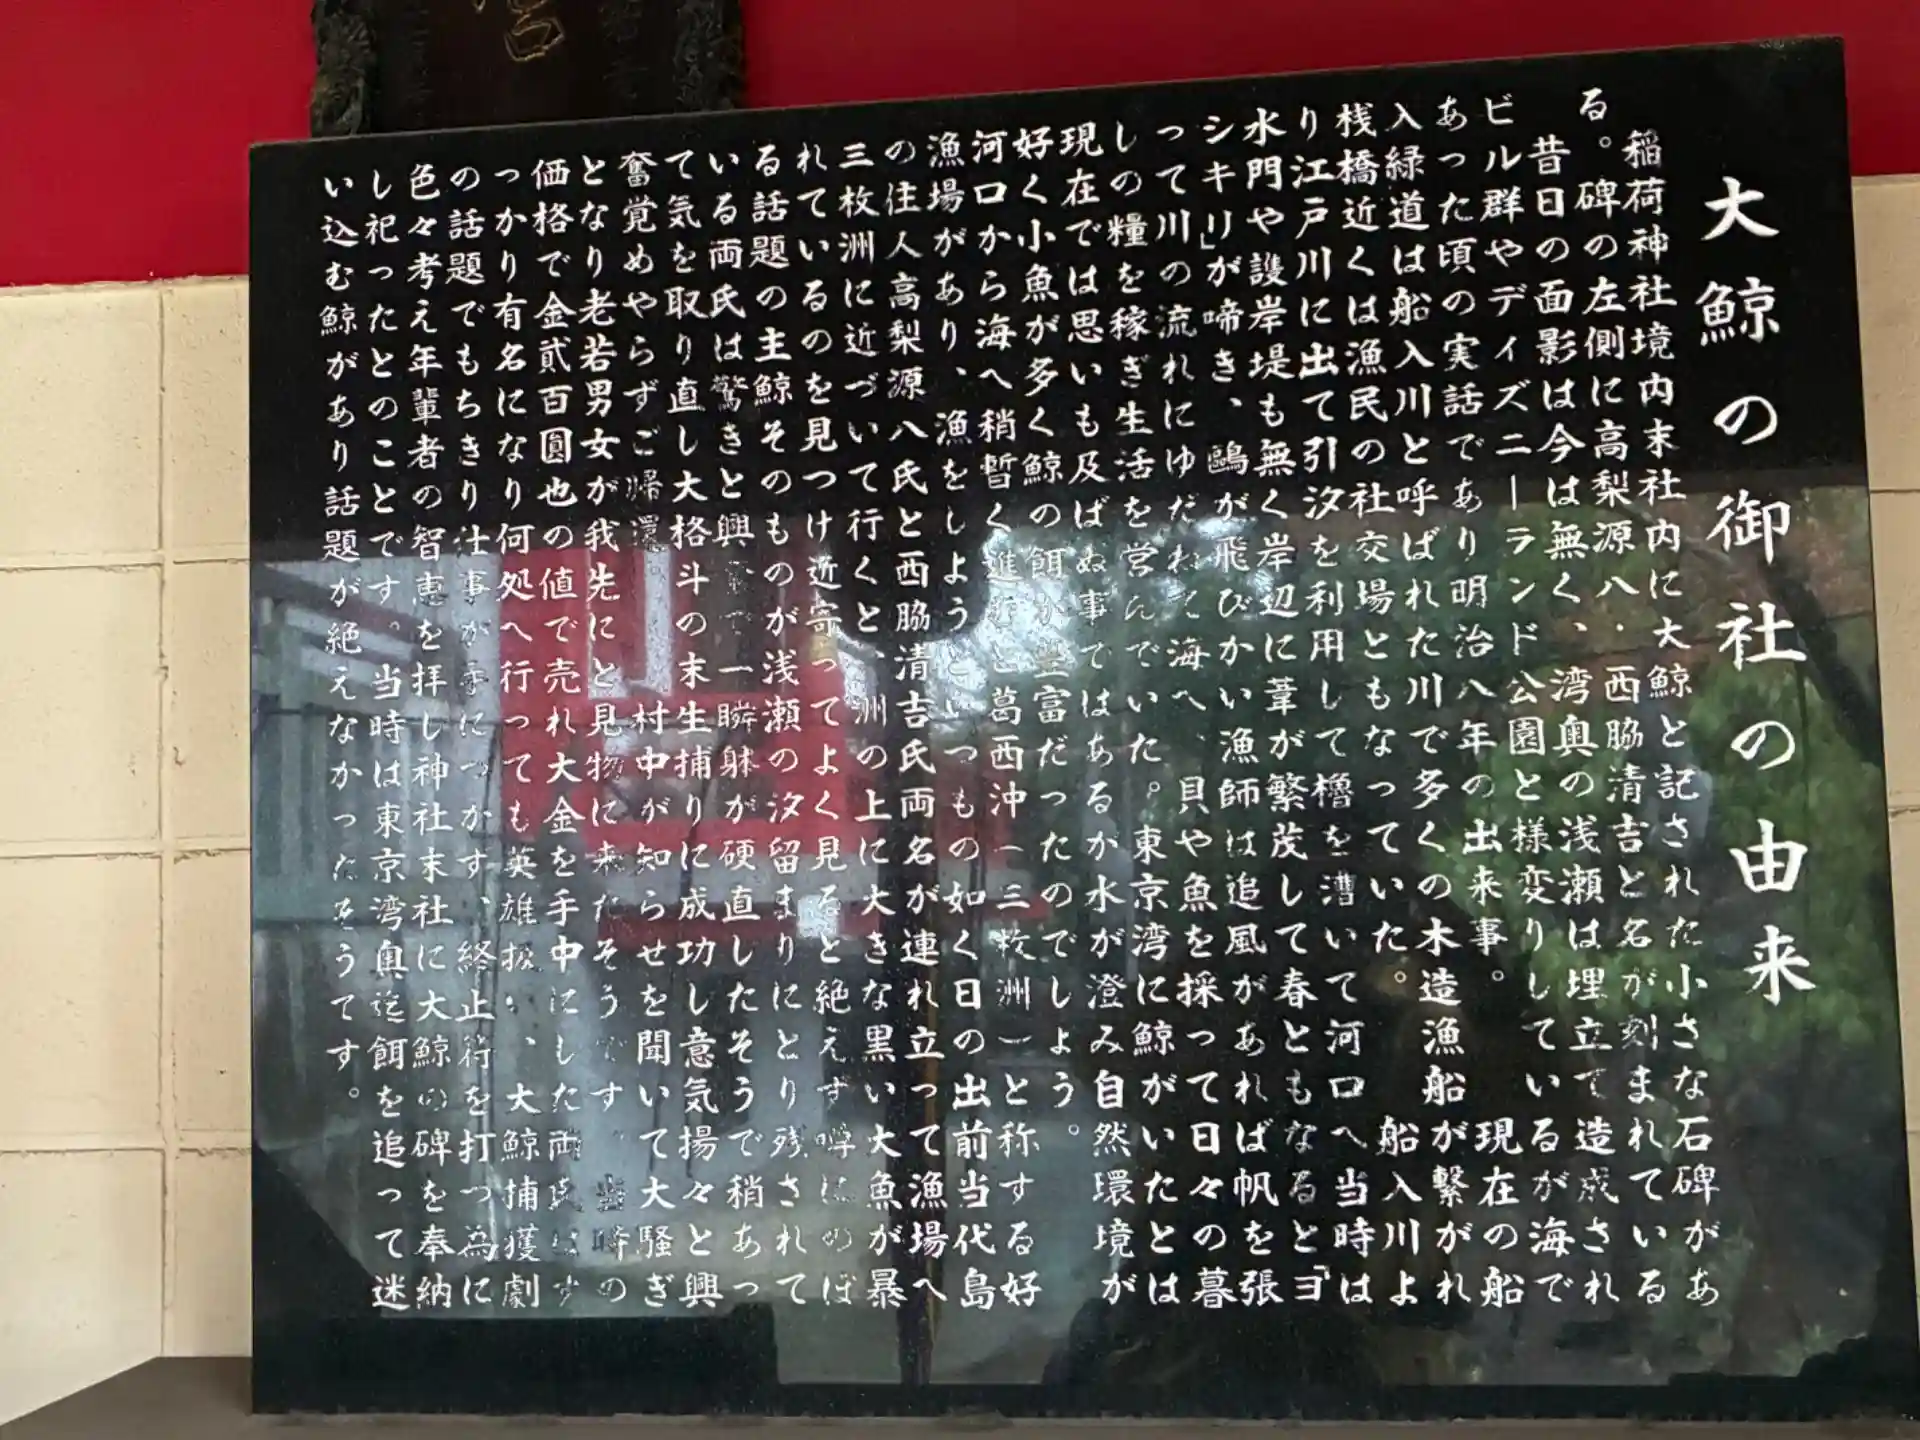 大鯨の御社の由来
稲荷神社境内末社内に大鯨と記された小さな石碑があ
る。碑の左側に高梨源八・西脇清吉と名が刻まれている
昔日の面影は今は無く、湾奥の浅瀬は埋立て造成され
ビル群やディズニーランド公園と様変りしているが海で
あった頃の実話であり明治八年の出来事。現在の船
入緑道は船入川と呼ばれた川で多くの木造漁船が繋がれ
桟橋近くは漁民の社交場ともなっていた。船入川よ
り江戸川に出て引汐を利用して櫓を漕いて河口へ当時は
水門や護岸堤も無く岸辺に葦が繁茂して春ともなると「ヨ
シキリ」が啼き、鷗が飛びかい漁師は追風があれば帆を張
って川の流れにゆだねて海へ、貝や魚を採って日々の暮
しの糧を稼ぎ生活を営んでいた。東京湾に鯨がいたとは
現在では思いも及ばぬ事ではあるが水が澄み自然環境が
好く小魚が多く鯨の餌が豊富だったのでしょう。
河口から海へ稍暫く進むと葛西沖(三枚洲)と称する好
漁場があり、漁をしようといつもの如く日の出前当代島
の住人高梨源八氏と西脇清吉氏両名が連れ立って漁場へ
三枚洲に近づいて行くと、洲の上に大きな黒い大魚が暴
れているのを見つけ近寄ってよく見ると絶えず噂にのぼ
る話題の主鯨そのものが浅瀬の汐留まりにとり残されて
いる両氏は驚きと興で一瞬躰が硬直したそうで稍あっ
て気を取り直し大格斗の末生捕りに成功し意気揚々と興
奮覚めやらずご帰還。村中が知らせを聞いて大騒ぎ
となり老若男女が我先にと見物に来たそうです。当時の
価格で金貳百圓也の値で売れ大金を手中にした両氏はす
っかり有名になり何処へ行っても英雄扱い、大鯨捕獲劇
の話題でもちきり仕事が手につかず、終止符を打つ為に
色々考え年輩者の智恵を拝し神社末社に大鯨の碑を奉納
し祀ったとのことです。当時は東京湾奥迄餌を追って迷
い込む鯨があり話題が絶えなかったそうです。